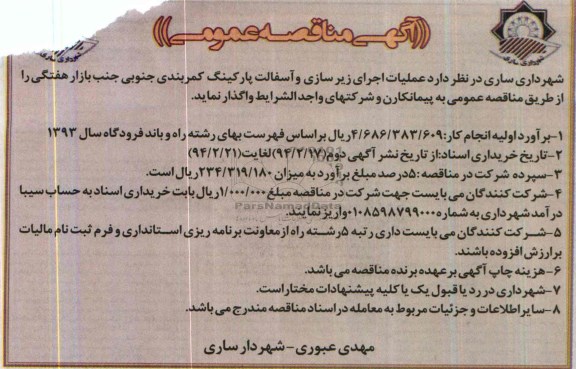 ((آگهی مناقصه عمومی))
شهرداری ساری
شهرداری ساری در نظر دارد عملیات اجرای زیر سازی و آسفالت پارکینگ کمربندی جنوبی جنب بازار هفتگی را
از طریق مناقصه عمومی به پیمانکارن و شرکتهای واجد الشرایط واگذار نماید.
۱-برآورد اولیه انجام کار:۴/۶۸۶/۳۸۳/۶۰۹ریال براساس فهرست بهای رشته راه و باند فرودگاه سال ۱۳۹۳
۲-تاریخ خریداری اسناد:از تاریخ نشر آگهی دوم(۹۴/۲/۱۷)لغایت(۹۴/۲/۲۱)
۳-سپرده شرکت در مناقصه:۵درصد مبلغ برآورد به میزان ۲۳۴/۳۱۹/۱۸۰ریال است.
۴-شرکت کنندگان می بایست جهت شرکت در مناقصه مبلغ ۱/۰۰۰/۰۰۰ریال بابت خریداری اسناد به حساب سیبا
درآمد شهرداری به شماره ۰۱۰۸۵۹۸۷۹۹۰۰۰واریز نمایند.
ParsNamadData
۵-شرکت کنندگان می بایست داری رتبه ۵رشته راه از معاونت برنامه ریزی اسـتانداری و فرم ثبت نام مالیات
برارزش افزوده باشند.
۶-هزینه چاپ آگهی برعهده برنده مناقصه می باشد.
۷-شهرداری در رد یا قبول یک یا کلیه پیشنهادات مختار است.
۸-سایر اطلاعات و جزئیات مربوط به معامله در اسناد مناقصه مندرج می باشد.
مهدی عبوری-شهردار ساری